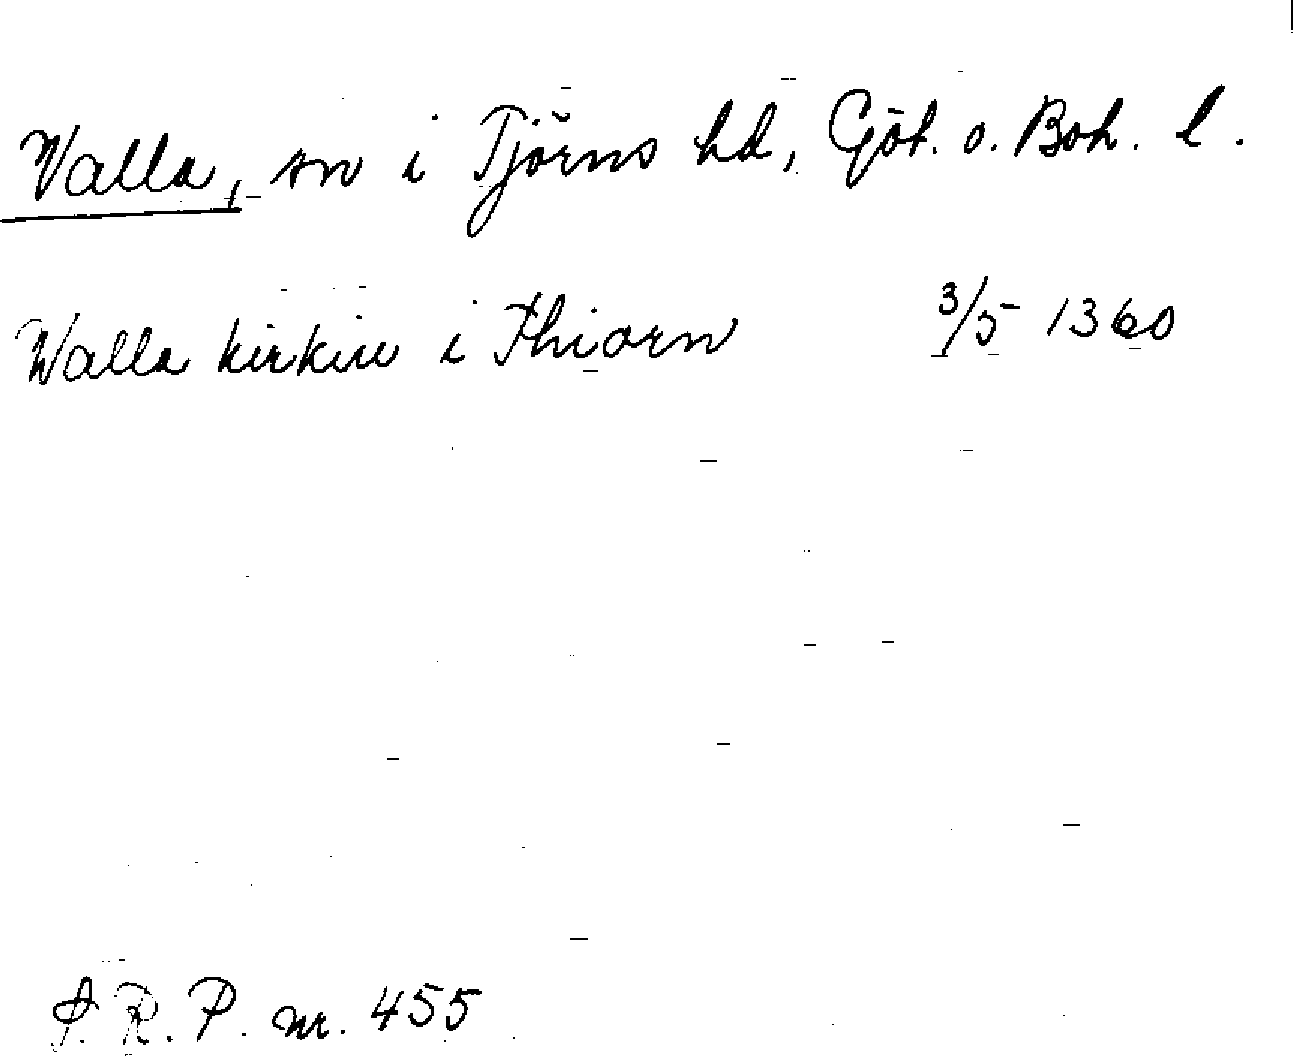 Valla, sn i Tjörns hd, Göt. o. Boh. l.
Walla kirkiu i Thiorn 3/5 1360
S. R. P. nr. 455